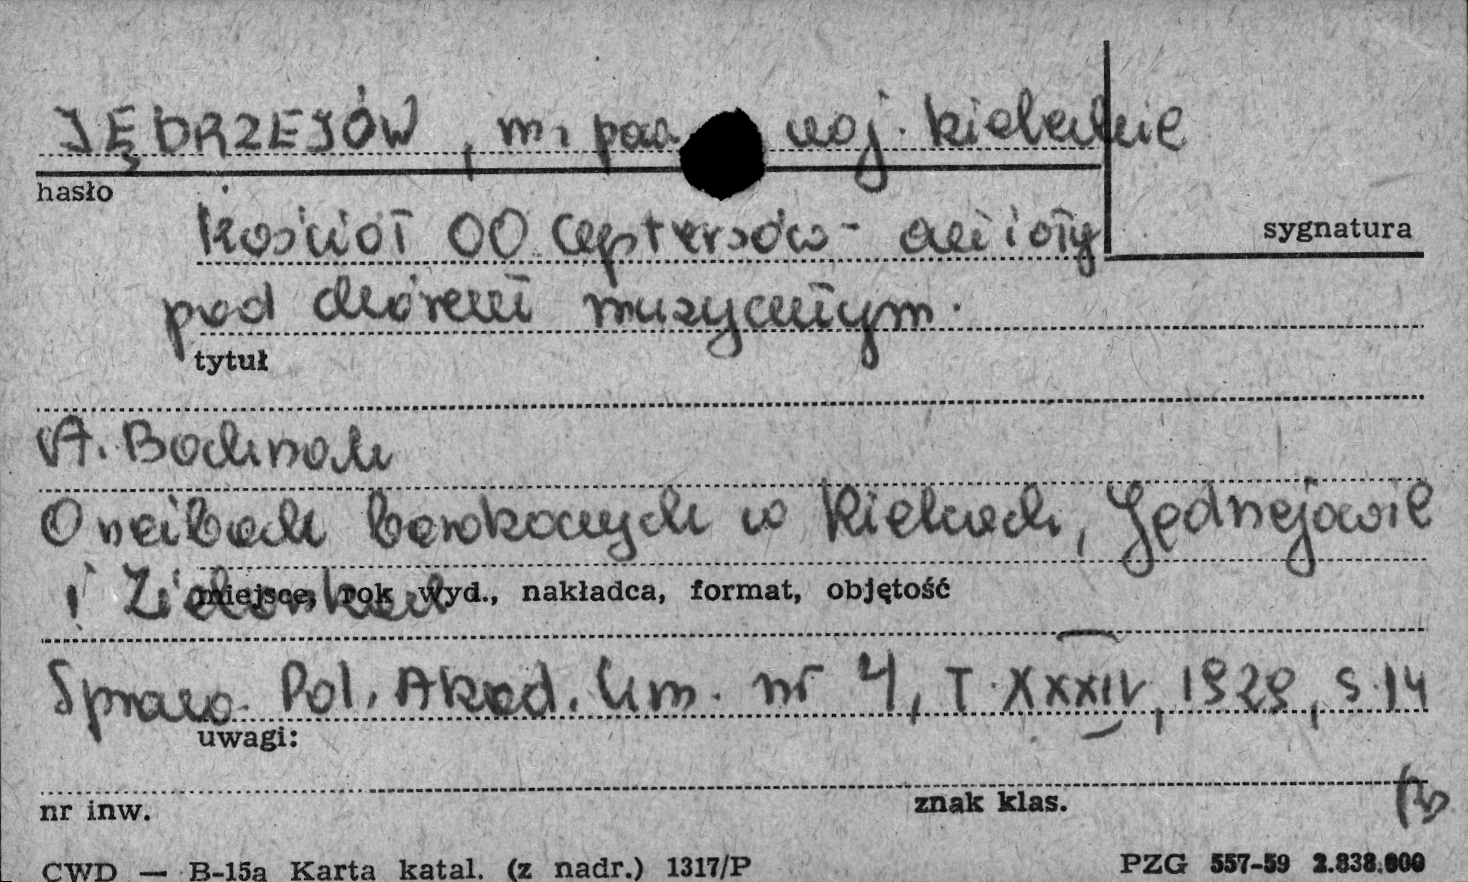 JĘDRZEJÓW, m. pow. woj. kieleckie
hasło
Kościół OO Cystersów - anioły
sygnatura
pod chórem muzycznym.
tytuł
A. Bochnak
O rzeźbach barokowych w Kielcach, Jędrzejowie
i Zielonkach
miejsce, rok wyd., nakładca, format, objętość
Spraw. Pol. Akad. Um. nr 4, T. XXXIV, 1929, s. 14
uwagi:
nr inw.
znak klas.
CWD — B-15a Karta katal. (z nadr.) 1317/P
PZG 557-59 2.838.000